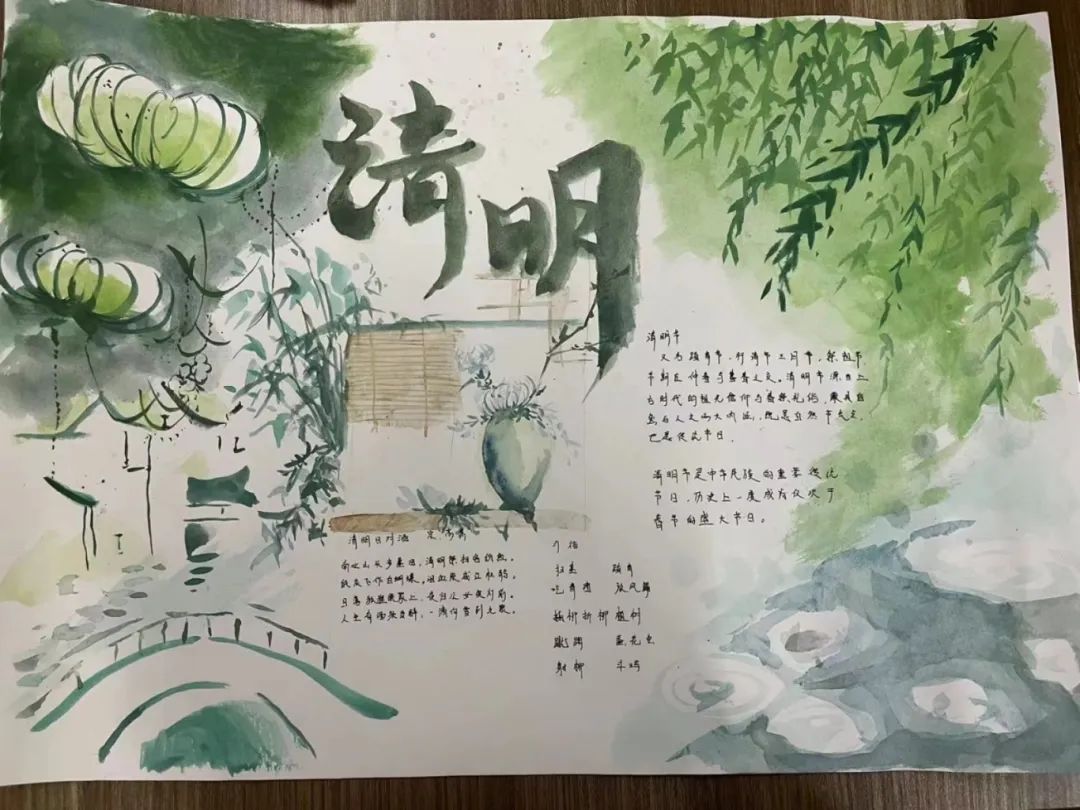 清明
清明节
又名踏青节、行清节、三月节、祭祖节
节期在仲春与暮春之交。清明节源自上
古时代的祖先信仰与春祭礼俗，兼具自
然与人文两大内涵，既是自然节气点，
也是传统节日。
清明节是中华民族的重要传统
节日，历史上一度成为仅次于
春节的盛大节日。
清明日对酒
南北山头多墓田，清明祭扫各纷然。
纸灰飞作白蝴蝶，泪血染成红杜鹃。
日落狐狸眠冢上，夜归儿女笑灯前。
人生有酒须当醉，一滴何曾到九泉。
习俗
扫墓 踏青
吃青团 放风筝
插柳折柳 植树
蹴鞠 蚕花会
射柳 斗鸡